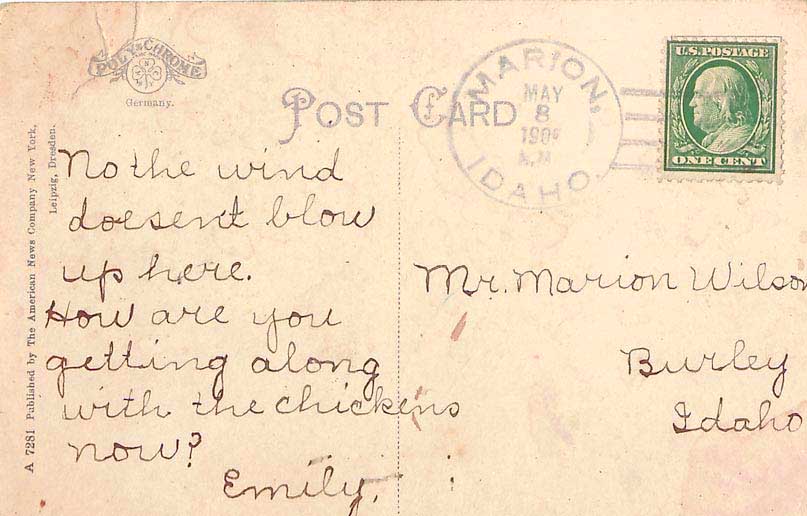 POLY-CHROME
Germany.
POST CARD
MARION,
MAY
8
A.M.
IDAHO.
U.S. POSTAGE
ONE CENT
A 7281 Published by The American News Company New York,
Leipzig, Dresden.
No the wind
doesent blow
up here.
How are you
getting along
with the chickens
now?
Emily.
Mr. Marion Wilson
Burley
Idaho